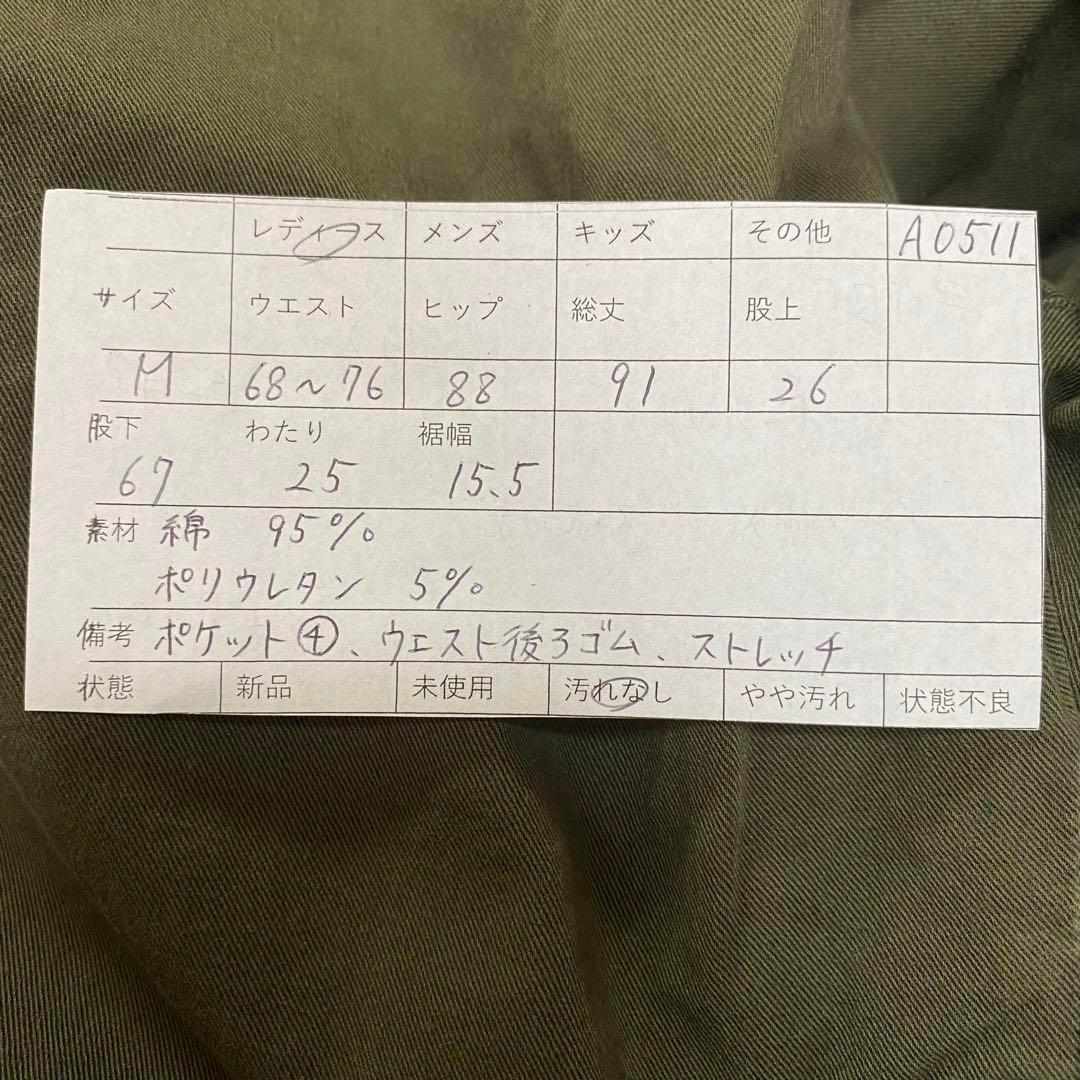 レディース メンズ キッズ その他 A0511
サイズ ウエスト ヒップ 総丈 股上
M 68~76 88 91 26
股下 わたり 裾幅
67 25 15.5
素材 綿 95%
ポリウレタン 5%
備考 ポケット④、ウエスト後ろゴム、ストレッチ
状態 新品 未使用 汚れなし やや汚れ 状態不良